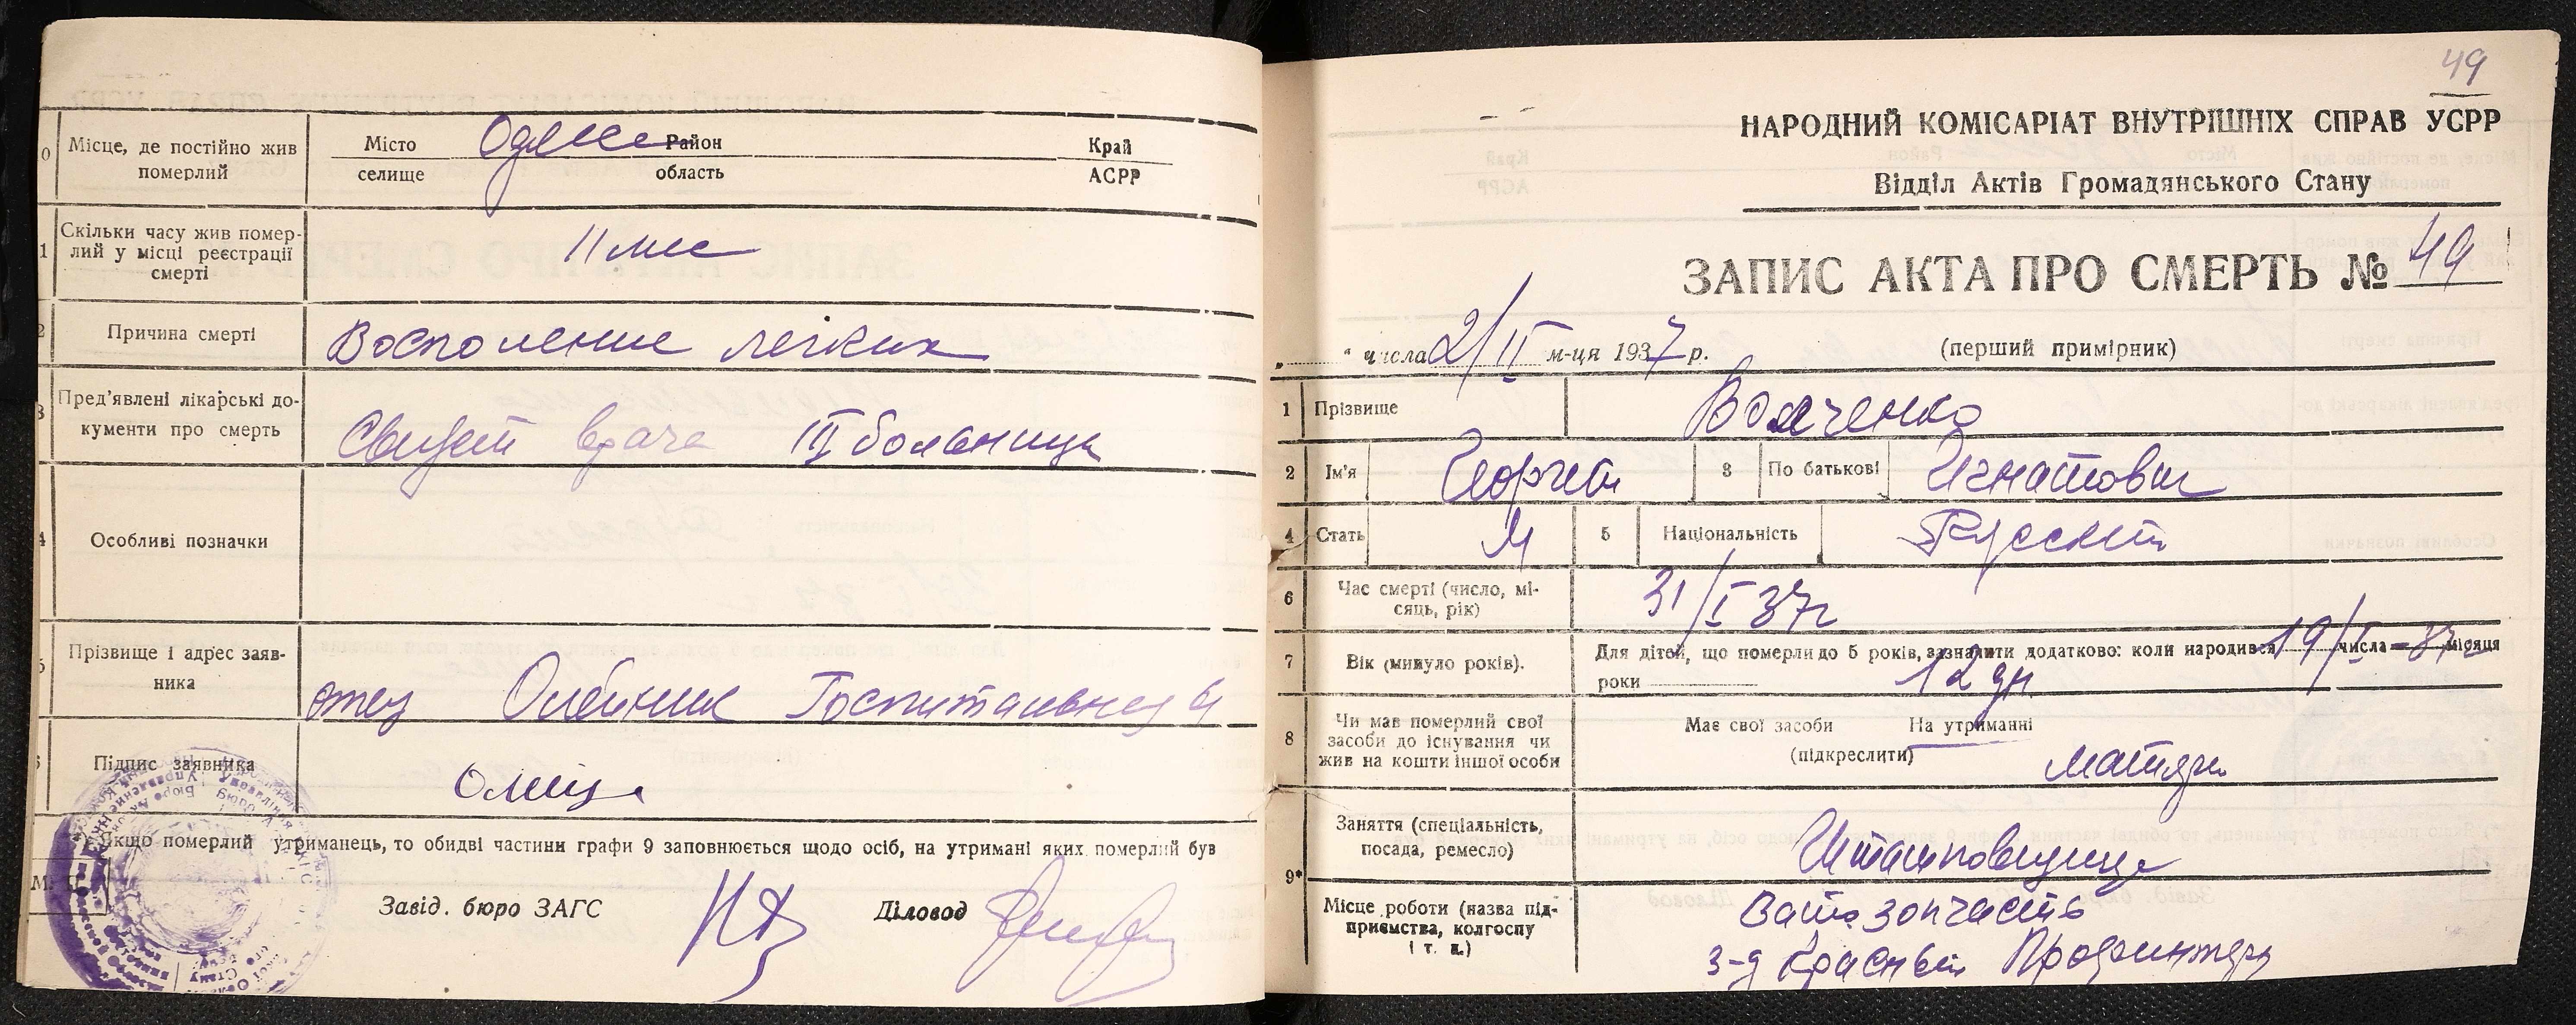 0 Місце, де постійно жив померлий
Місто селище Одесса Район область Край АСРР
1 Скільки часу жив помер-
лий у місці реєстрації
смерті
11 мес
2 Причина смерті
Восполение легких
3 Пред'явлені лікарські до-
кументи про смерть
Свидет врача III больница
4 Особливі позначки
5 Прізвище і адрес заяв-
ника
отец Госпитальная
6 Підпис заявника
*) Якщо померлий утриманець, то обидві частини графи 9 заповнюється щодо осіб, на утримані яких померлий був
М. П.
Завід. бюро ЗАГС
Діловод
49
НАРОДНИЙ КОМІСАРІАТ ВНУТРІШНІХ СПРАВ УСРР
Відділ Актів Громадянського Стану
ЗАПИС АКТА ПРО СМЕРТЬ № 49
„ “ числа 2/II м-ця 1937 р. (перший примірник)
1 Прізвище Волченко
2 Ім'я Георгий 3 По батькові Игнатович
4 Стать М 5 Національність Русский
6 Час смерті (число, мі-
сяць, рік)
31/I 37г
7 Вік (минуло років).
Для дітей, що померли до 5 років, зазначити додатково: коли народився 19/I числа – 37г місяця
роки 12 дн
8 Чи мав померлий свої
засоби до існування чи
жив на кошти іншої особи
Має свої засоби На утриманні
(підкреслити)
матери
9* Заняття (спеціальність,
посада, ремесло)
Штамповщица
Місце роботи (назва під-
приємства, колгоспу
і т. д.)
запчасть
з-д Красный Профинтерн